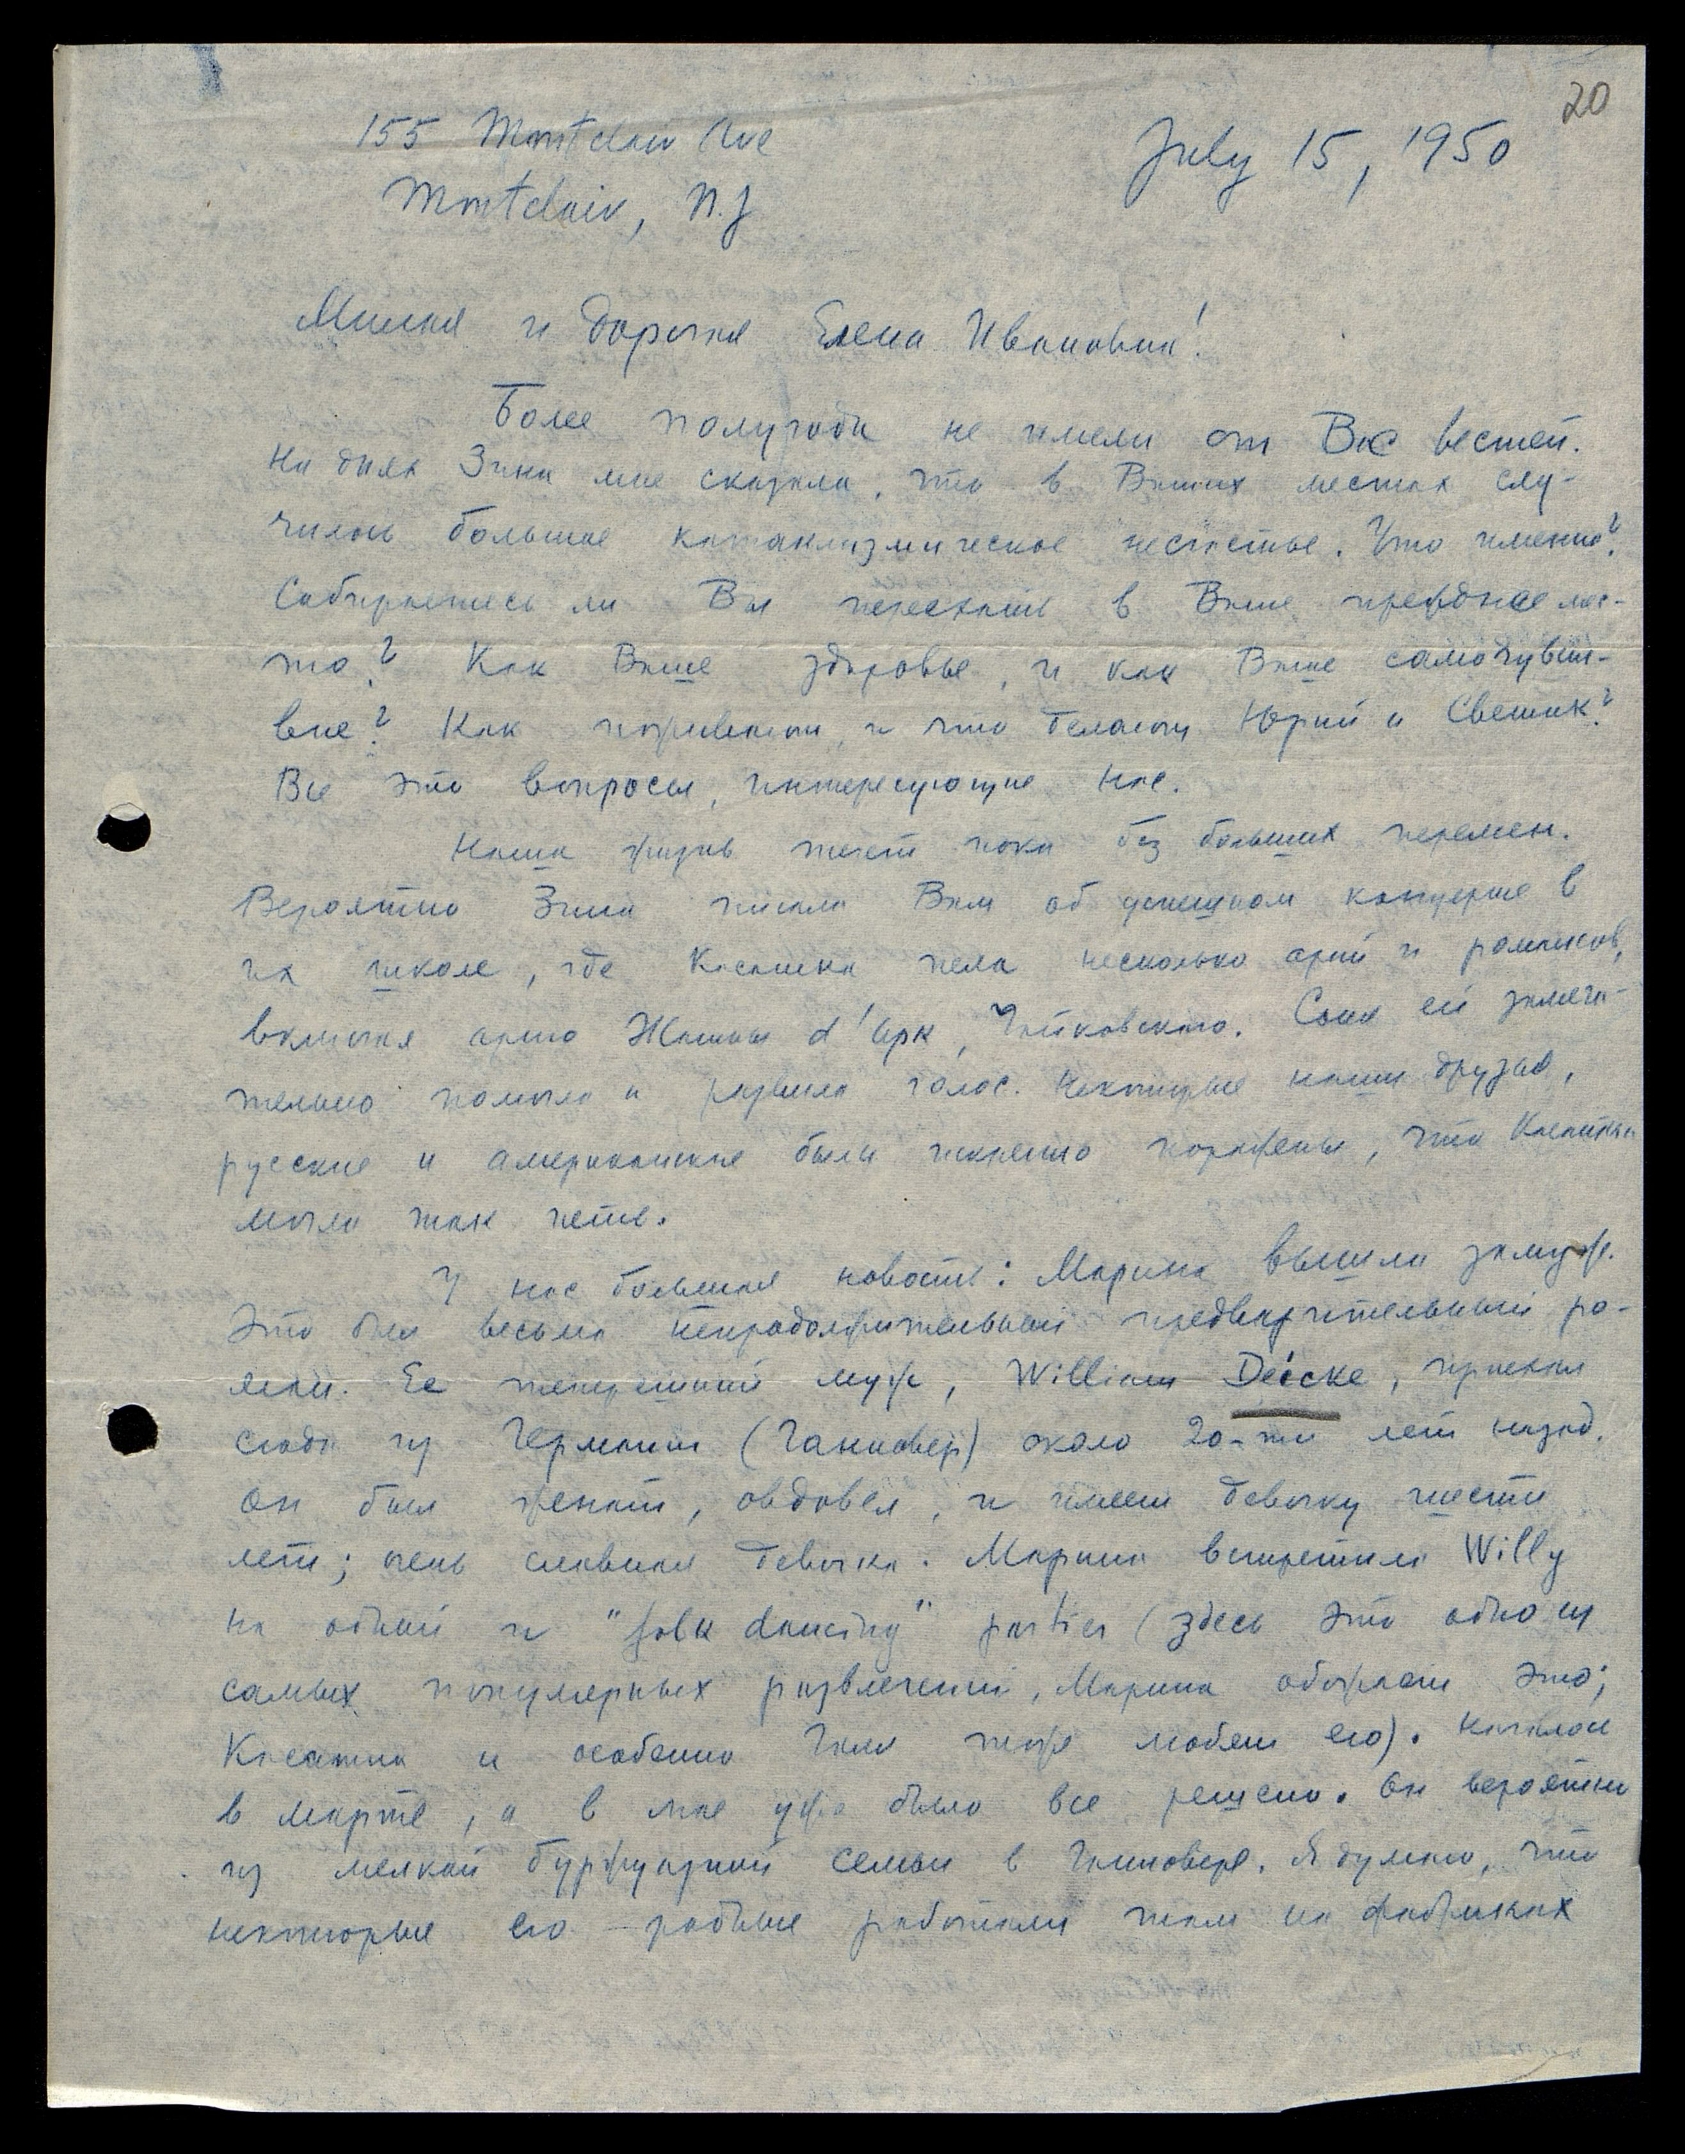 20
155 Montclair Ave
July 15, 1950
Montclair, N.J
Милая и дорогая Елена Ивановна!
Более полугода не имели от Вас вестей.
На днях Зина мне сказала, что в Ваших местах слу-
чилось большое катаклизмическое несчастье. Что именно?
Собираетесь ли Вы переехать в Ваше прежнее мес-
то? Как Ваше здоровье, и как Ваше самочувст-
вие? Как поживают, и что делают Юрий и Светик?
Все это вопросы, интересующие нас.
Наша жизнь течет пока без больших перемен.
Вероятно Зина писала Вам об успешном концерте в
их школе, где Касатка пела несколько арий и романсов,
включая арию Жанны d'Арк, Чайковского. Соня ей замеча-
тельно помогла и развила голос. Некоторые наши друзья,
русские и американские были искренно поражены, что Касатка
могла так петь.
У нас большая новость: Марина вышла замуж.
Это был весьма непродолжительный предварительный ро-
ман. Ее теперешний муж, William Deicke, приехал
сюда из Германии (Ганновер) около 20-ти лет назад.
Он был женат, овдовел, и имеет девочку шести
лет; очень славная девочка. Марина встретила Willy
на одной и "folk dancing" parties (здесь это одно из
самых популярных развлечений, Марина обожает это;
Касатка и особенно Гиля тоже любят его). Началось
в марте, а в мае уже было все решено. Он вероятно
из мелкой буржуазной семьи в Ганновере. Я думаю, что
некоторые его родные работали там на фабриках